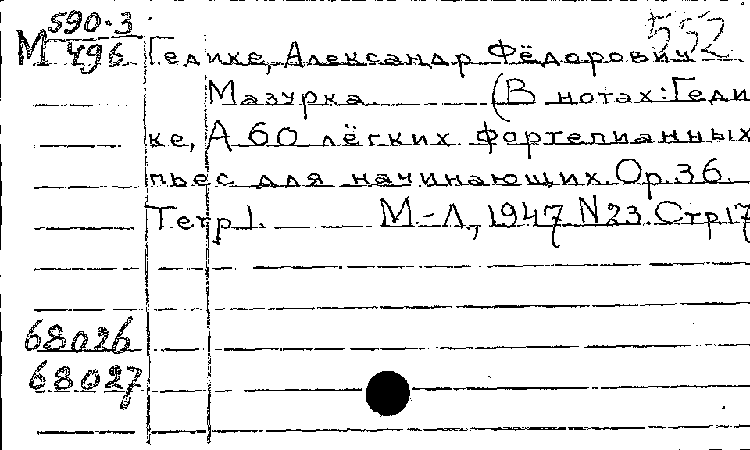 590-3
552
М 496 Гедике, Александр Фёдорович
Мазурка. (В нотах: Геди
ке, А 60 лёгких фортепианных
пьес для начинающих. Ор. 36.
Тетр 1. М-Л, 1947 N23. Стр 17
68026
68027